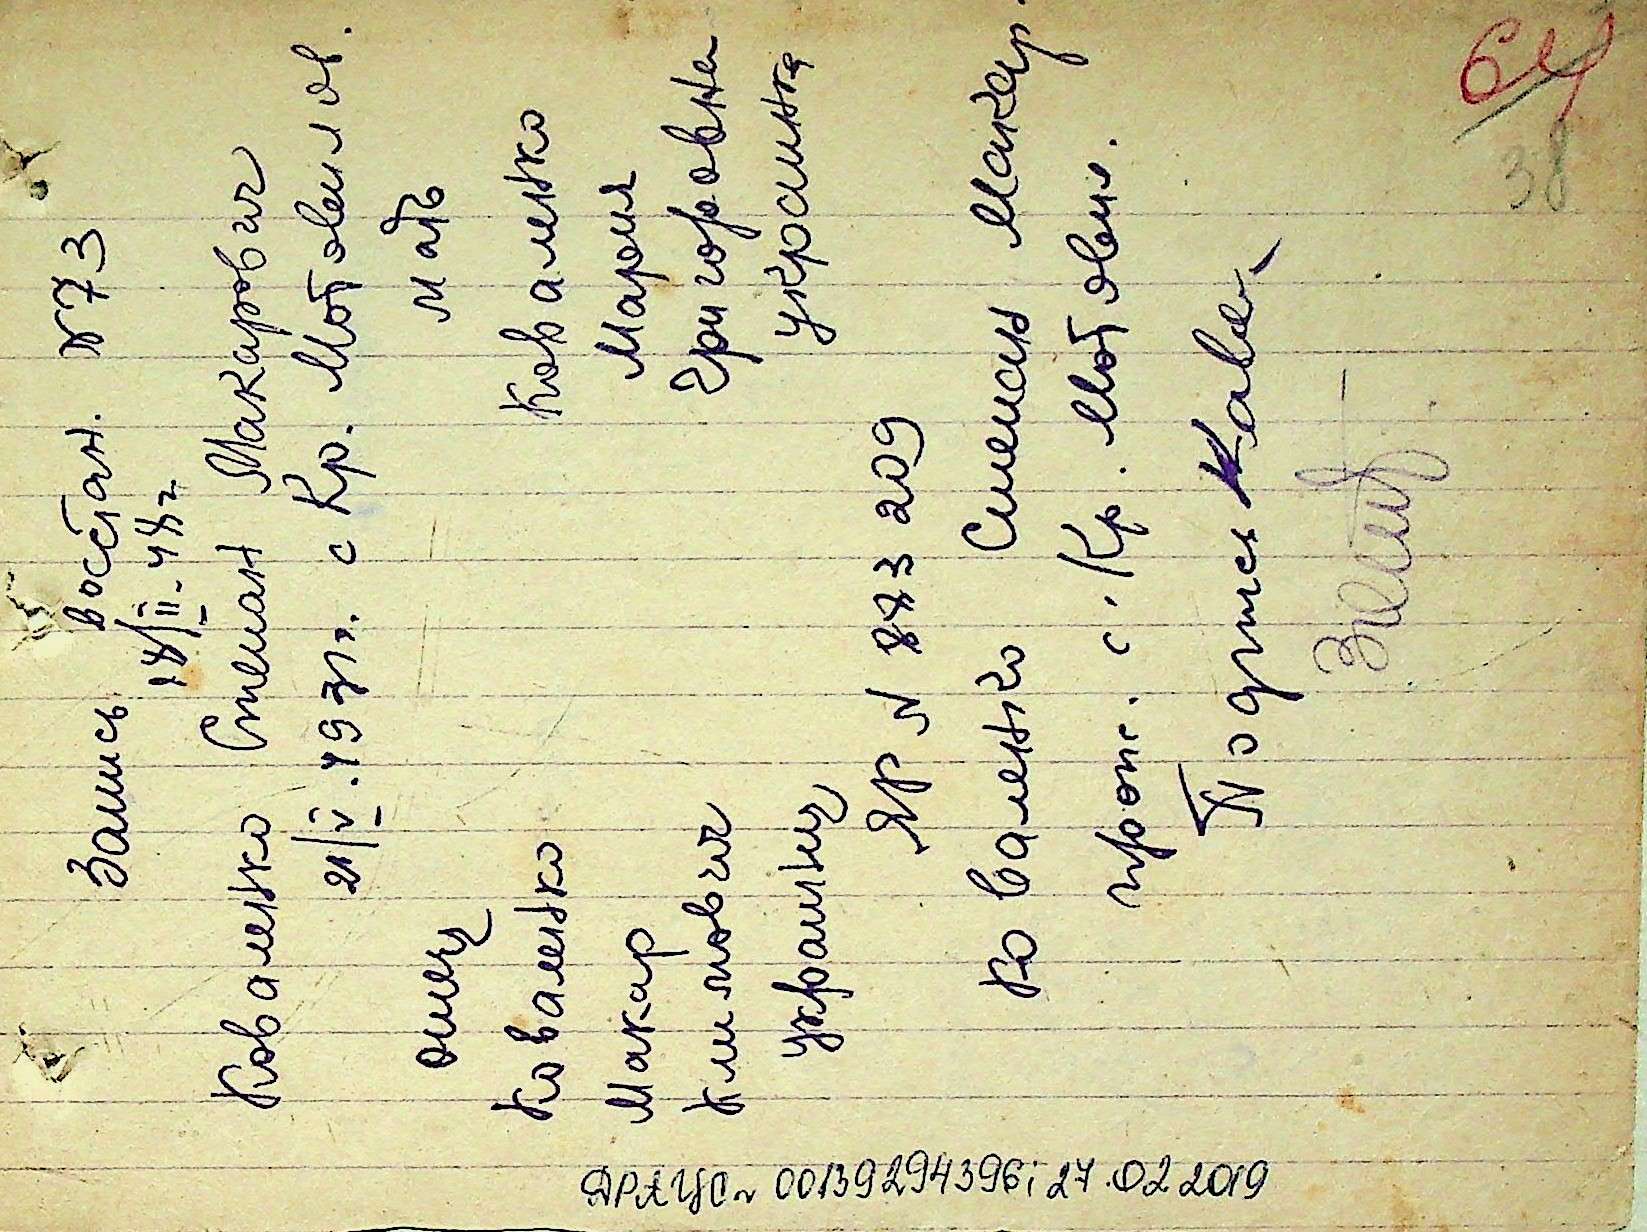 Запись восстан. №73
18/II-48 г.
Коваленко Степан Макарович
21/V.1931 г. с Кр. Мотовилов.
отец мать
Коваленко Коваленко
Макар Мария
Климович Григоровна
украинец украинка
ЯР № 873209
Коваленко Степан Макар.
прож. с. Кр. Мотовил.
Подпись Кове
64
38
ДРАЦС № 00139294396; 27.02 2019